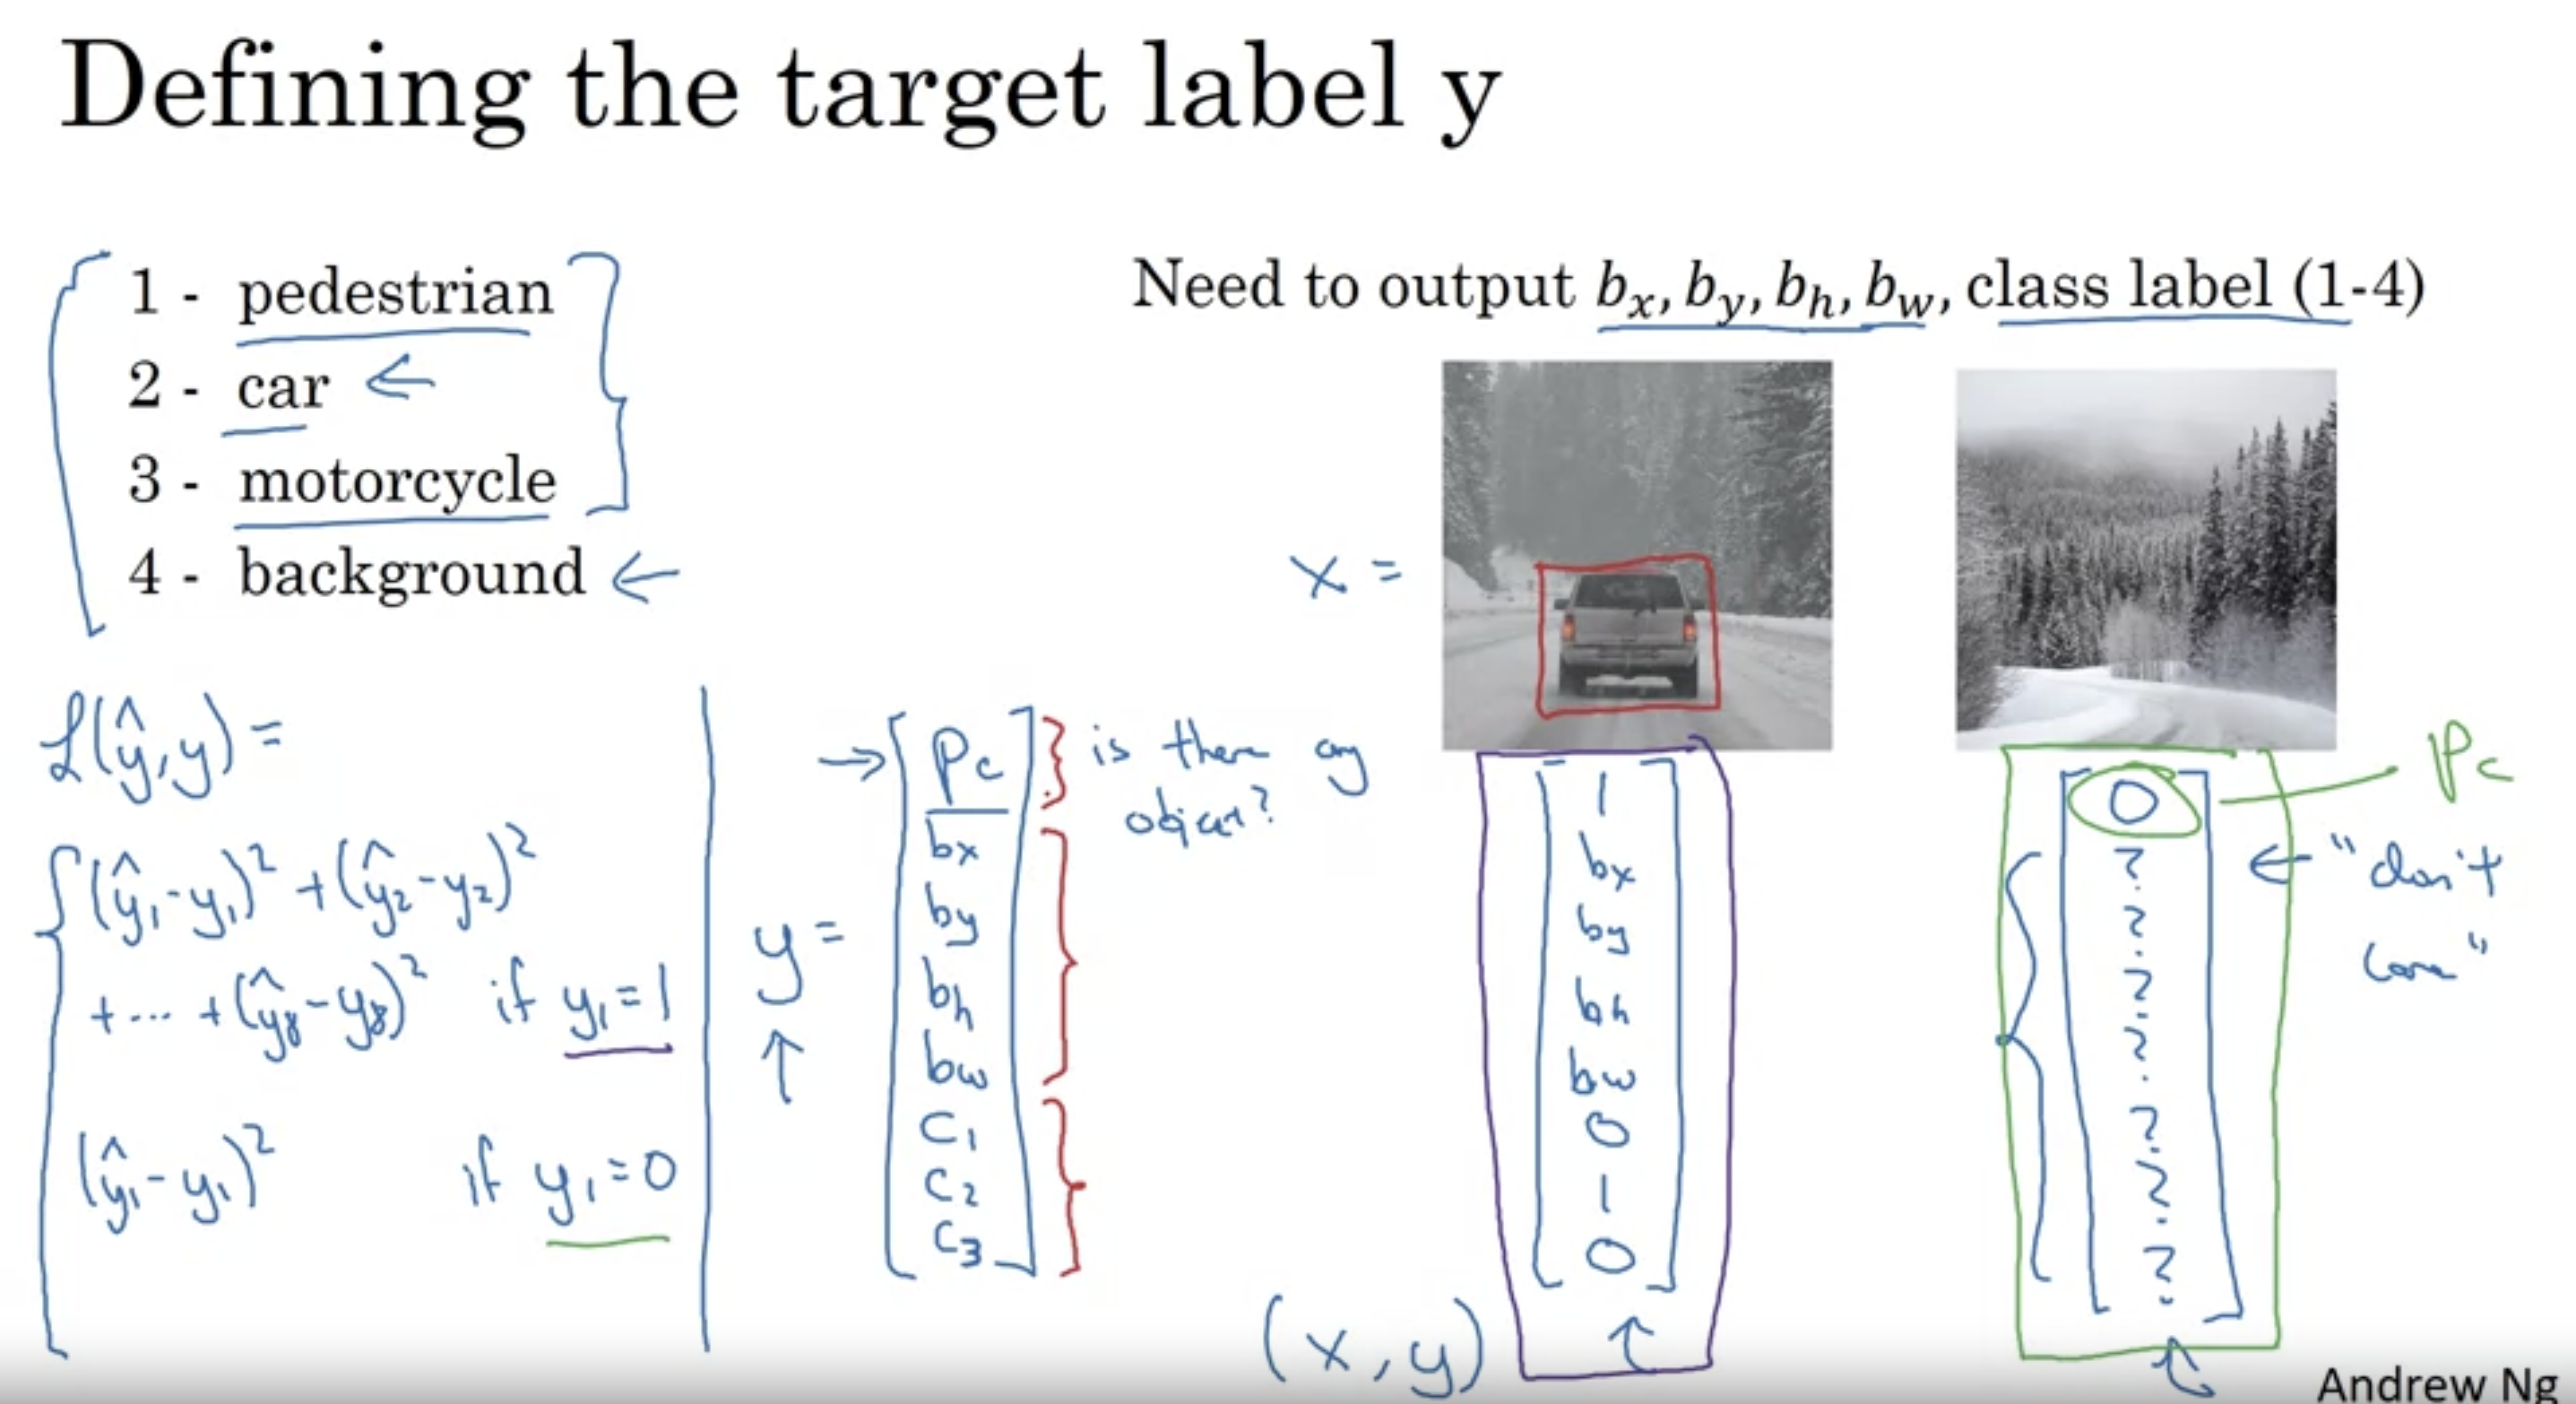 Defining the target label y
1 - pedestrian
2 - car ←
3 - motorcycle
4 - background ←
Need to output bx, by, bh, bw, class label (1-4)
x =
ℒ(ŷ,y) =
(ŷ₁-y₁)² + (ŷ₂-y₂)²
+ ... + (ŷ₈-y₈)² if y₁=1
(ŷ₁-y₁)² if y₁=0
y =
→ Pc
bx
by
bh
bw
C1
C2
C3
is there any
object?
(x,y)
1
bx
by
bh
bw
0
1
0
0
?
?
?
?
?
?
?
Pc
← "don't
care"
Andrew Ng